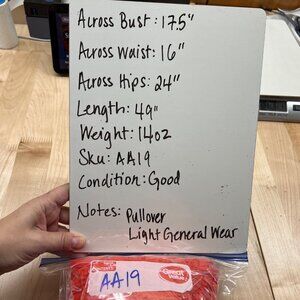 Across Bust: 17.5"
Across Waist: 16"
Across Hips: 24"
Length: 49"
Weight: 14oz
Sku: AA19
Condition: Good
Notes: Pullover
Light General Wear
Great Value
AA19